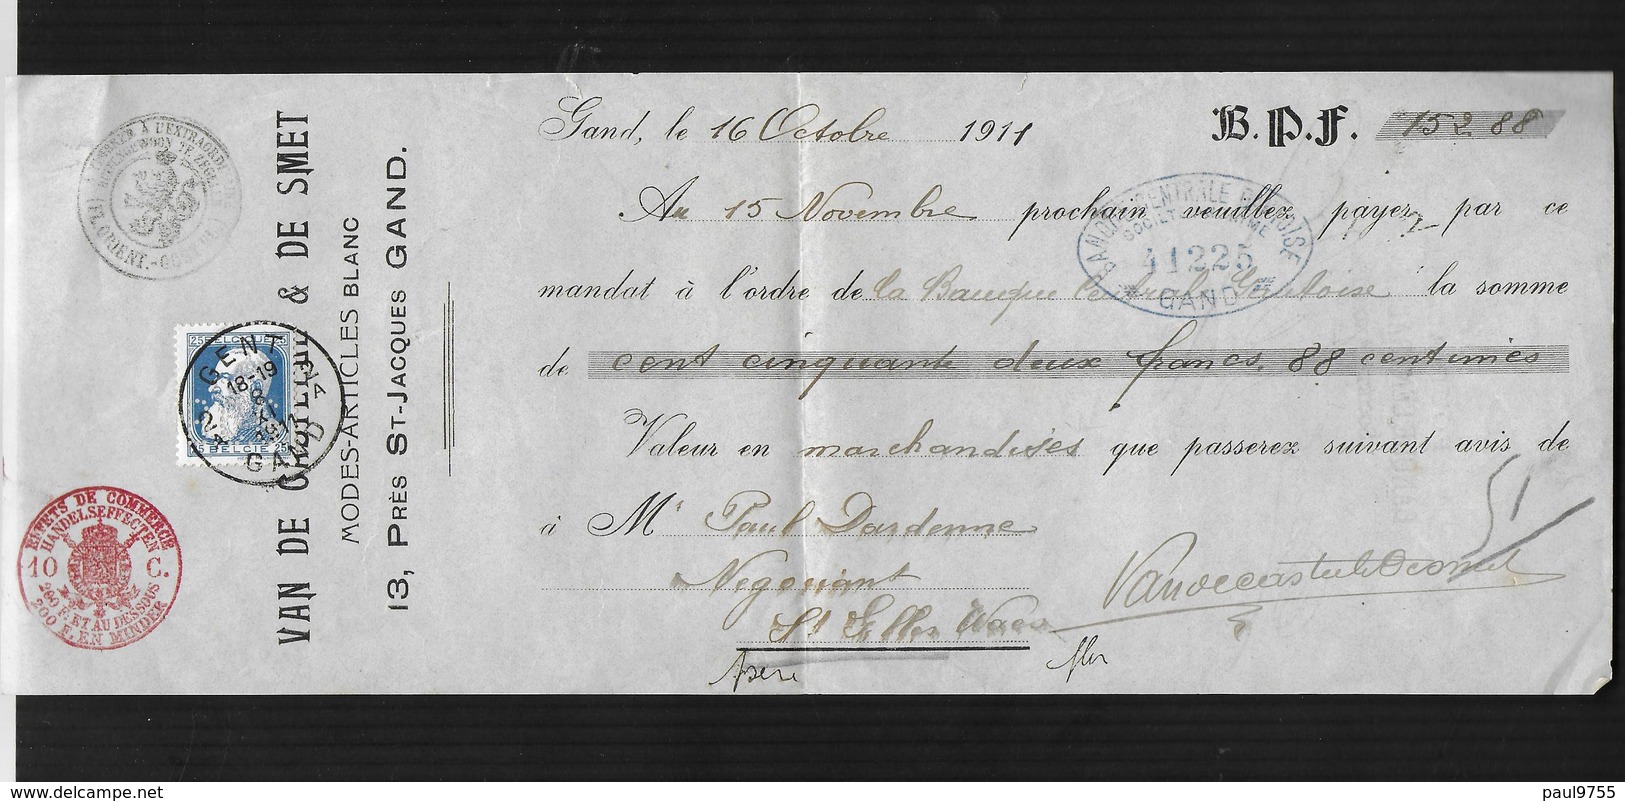 VAN DE CASTEELE & DE SMET
MODES-ARTICLES BLANC
13, PRÈS ST-JACQUES GAND.
TIMBRE A L'EXTRAORDINAIRE
EFFETS DE COMMERCE
HANDELSEFFECTEN
10 C.
200 F. ET AU DESSOUS
200 F. EN MINDER
25 BELGIE 25
25 BELGIE 25
GENT
18-19
8
XI
1911
GAND
Gand, le 16 Octobre 1911
B.P.F. 152 88
Au 15 Novembre prochain veuillez payer par ce
mandat à l'ordre de la Banque Centrale Gantoise la somme
de cent cinquante deux francs, 88 centimes
Valeur en marchandises que passerez suivant avis de
à Mr Paul Dardenne
Negociant
St Gilles Waes
BANQUE CENTRALE GANTOISE
SOCIETE ANONYME
41225
GAND
51
paul9755